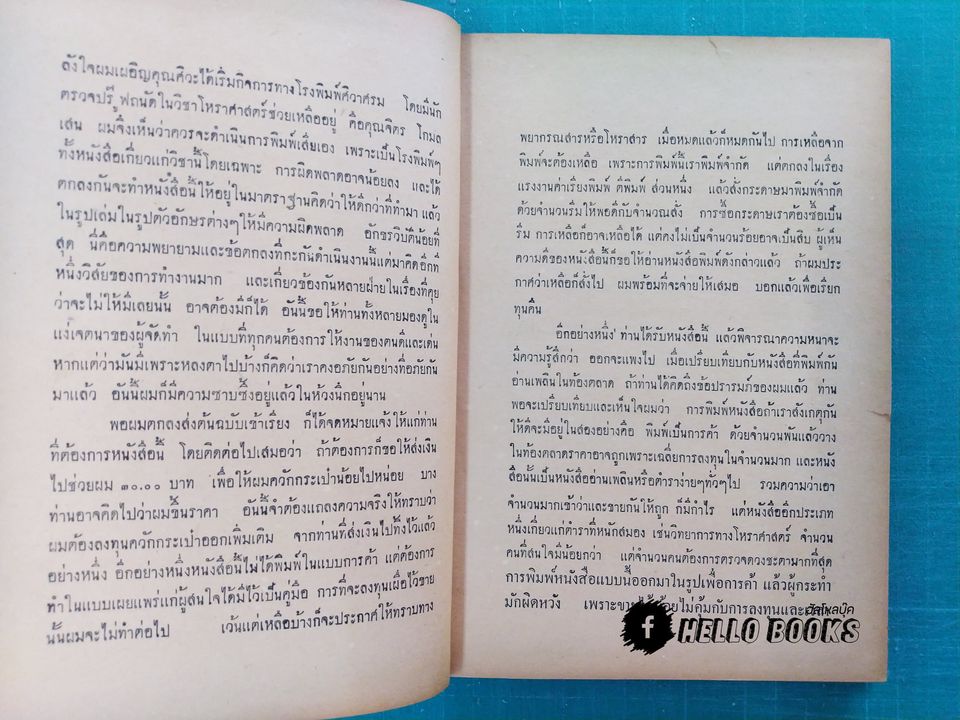 ลังใจผมเผอิญคุณศิวะได้เริ่มกิจการทางโรงพิมพ์ศิวาศรม โดยมีนัก
ตรวจปรู๊ฟถนัดในวิชาโหราศาสตร์ช่วยเหลืออยู่ คือคุณจิตร โกมล
เสน ผมจึงเห็นว่าควรจะดำเนินการพิมพ์เสียเอง เพราะเป็นโรงพิมพ์ๆ
ทั้งหนังสือเกี่ยวแก่วิชานี้โดยเฉพาะ การผิดพลาดอาจน้อยลง และได้
ตกลงกันจะทำหนังสือนี้ให้อยู่ในมาตราฐานคิดว่าให้ดีกว่าที่ทำมา แล้ว
ในรูปเล่มในรูปตัวอักษรต่างๆให้มีความผิดพลาด อักขรวิบัตีน้อยที่
สุด นี่คือความพยายามและข้อตกลงที่กะกันดำเนินงานนี้แต่มาคิดอีกที่
หนึ่งวิสัยของการทำงานมาก และเกี่ยวข้องกันหลายฝ่ายในเรื่องที่คุย
ว่าจะไม่ให้มีเลยนั้น อาจต้องมีก็ได้ อันนี้ขอให้ท่านทั้งหลายมองดูใน
แง่เจตนาของผู้จัดทำ ในแบบที่ทุกคนต้องการให้งานของตนดีและเด่น
หากแต่ว่ามันมีเพราะหลงตาไปบ้างก็คิดว่าเราคงอภัยกันอย่างที่อภัยกัน
มาแล้ว อันนี้ผมก็มีความซาบซึ้งอยู่แล้วในห้วงนึกอยู่นาน
พอผมตกลงส่งต้นฉบับเข้าเรียง ก็ได้จดหมายแจ้งให้แก่ท่าน
ที่ต้องการหนังสือนี้ โดยติดต่อไปเสมอว่า ถ้าต้องการก็ขอให้ส่งเงิน
ไปช่วยผม ๓๐.๐๐ บาท เพื่อให้ผมควักกระเป๋าน้อยไปหน่อย บาง
ท่านอาจคิดไปว่าผมขึ้นราคา อันนี้จำต้องแถลงความจริงให้ทราบว่า
ผมต้องลงทุนควักกระเป๋าออกเพิ่มเติม จากท่านที่ส่งเงินไปทิ้งไว้แล้ว
อย่างหนึ่ง อีกอย่างหนึ่งหนังสือนี้ไม่ได้พิมพ์ในแบบการค้า แต่ต้องการ
ทำในแบบเผยแพร่แก่ผู้สนใจได้มีไว้เป็นคู่มือ การที่จะลงทุนเผื่อไว้ขาย
นั้นผมจะไม่ทำต่อไป เว้นแต่เหลือบ้างก็จะประกาศให้ทราบทาง
พยากรณสารหรือโหราสาร เมื่อหมดแล้วก็หมดกันไป การเหลือจาก
พิมพ์จะต้องเหลือ เพราะการพิมพ์นี้เราพิมพ์จำกัด แต่ตกลงในเรื่อง
แรงงานค่าเรียงพิมพ์ ตีพิมพ์ ส่วนหนึ่ง แล้วสั่งกระดาษมาพิมพ์จำกัด
ด้วยจำนวนริมให้พอดีกับจำนวณสั่ง การซื้อกระดาษเราต้องซื้อเป็น
ริม การเหลือก็อาจเหลือได้ แต่คงไม่เป็นจำนวนร้อยอาจเป็นสิบ ผู้เห็น
ความดีของหนังสือนี้ก็ขอให้อ่านหนังสือพิมพ์ดังกล่าวแล้ว ถ้าผมประ
กาศว่าเหลือก็สั่งไป ผมพร้อมที่จะจ่ายให้เสมอ บอกแล้วเพื่อเรียก
ทุนคืน
อีกอย่างหนึ่ง ท่านได้รับหนังสือนี้ แล้วพิจารณาความหนาจะ
มีความรู้สึกว่า ออกจะแพงไป เมื่อเปรียบเทียบกับหนังสือที่พิมพ์กัน
อ่านเพลินในท้องตลาด ถ้าท่านได้คิดถึงข้อปรารมภ์ของผมแล้ว ท่าน
พอจะเปรียบเทียบและเห็นใจผมว่า การพิมพ์หนังสือถ้าเราสังเกตุกัน
ให้ดีจะมีอยู่ในสองอย่างคือ พิมพ์เป็นการค้า ด้วยจำนวนพันแล้ววาง
ในท้องตลาดราคาอาจถูกเพราะเฉลี่ยการลงทุนในจำนวนมาก และหนัง
สือนั้นเป็นหนังสืออ่านเพลินหรือตำราง่ายๆทั่วๆไป รวมความว่าเอา
จำนวนมากเข้าว่าและขายกันให้ถูก ก็มีกำไร แต่หนังสืออีกประเภท
หนึ่งเกี่ยวแก่ตำราที่หนักสมอง เช่นวิทยาการทางโหราศาสตร์ จำนวน
คนที่สนใจมีน้อยกว่า แต่จำนวนคนต้องการตรวจดวงชะตามากที่สุด
การพิมพ์หนังสือแบบนี้ออกมาในรูปเพื่อการค้า แล้วผู้กระทำ
มักผิดหวัง เพราะ ไม่คุ้มกับการลงทุนและ
ฮัลโหลบุ๊ค
f HELLO BOOKS